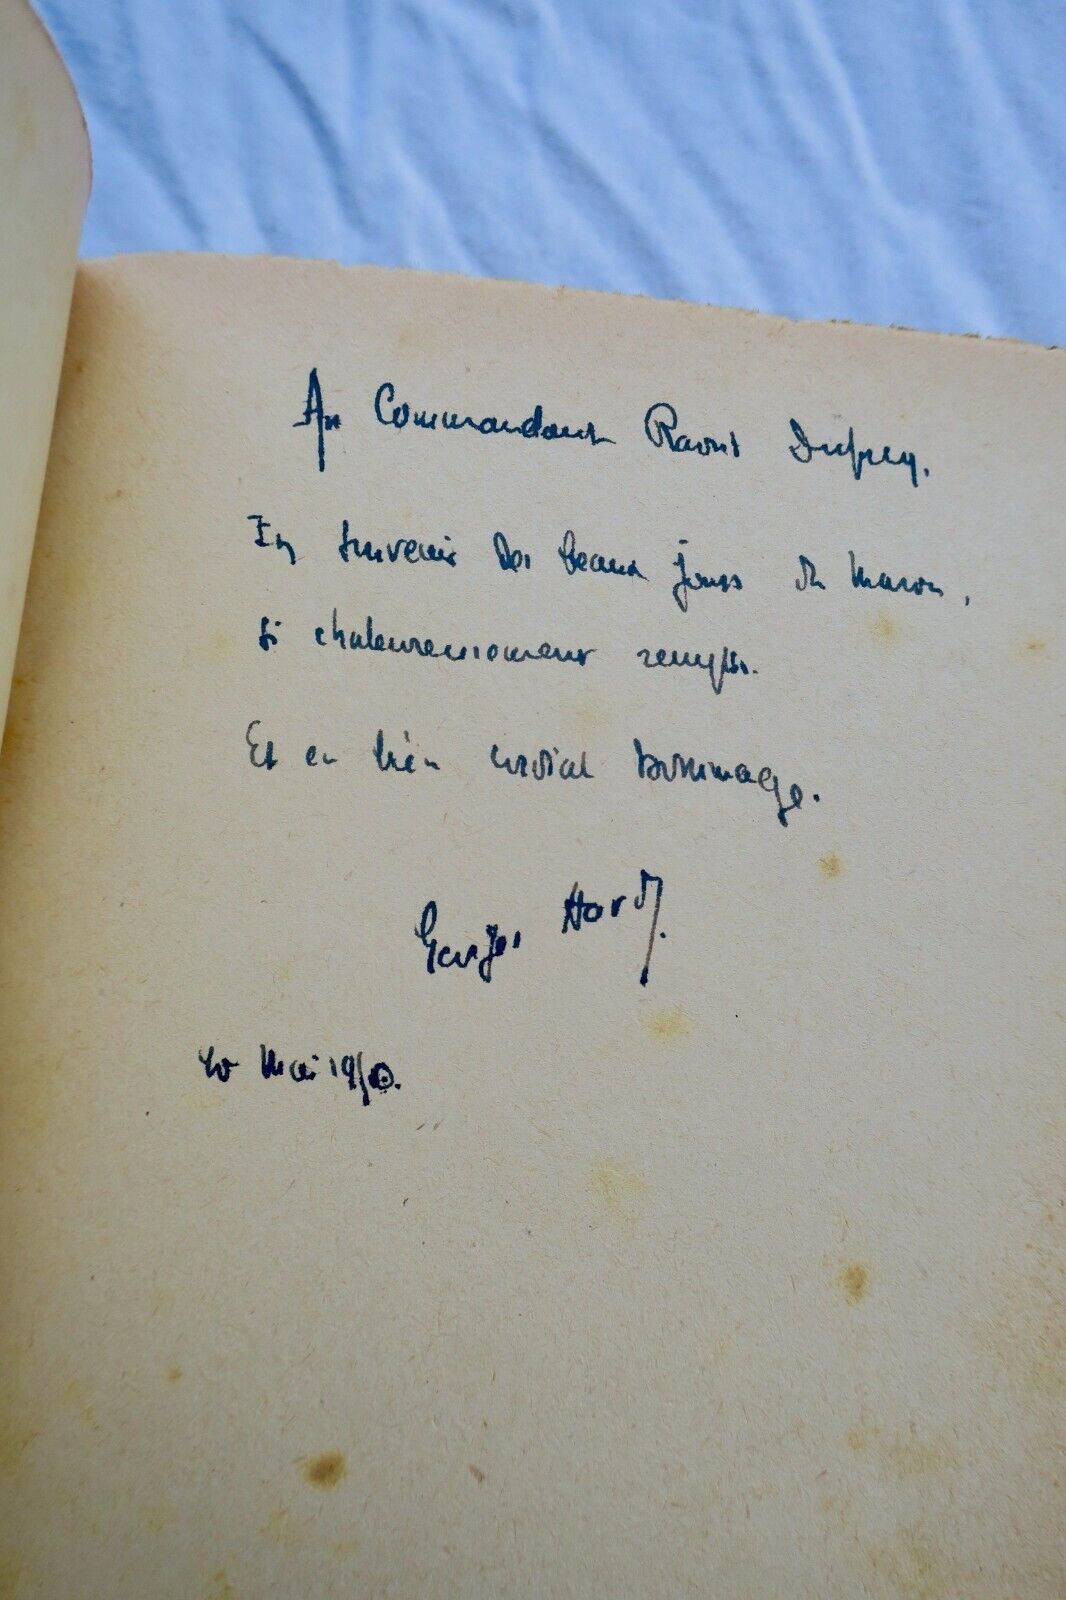 Au Commandant Raoul Duprey.
En souvenir des beaux jours du Maroc,
si chaleureusement remplis.
Et en bien cordial hommage.
Georges Hardy.
Mai 1950.